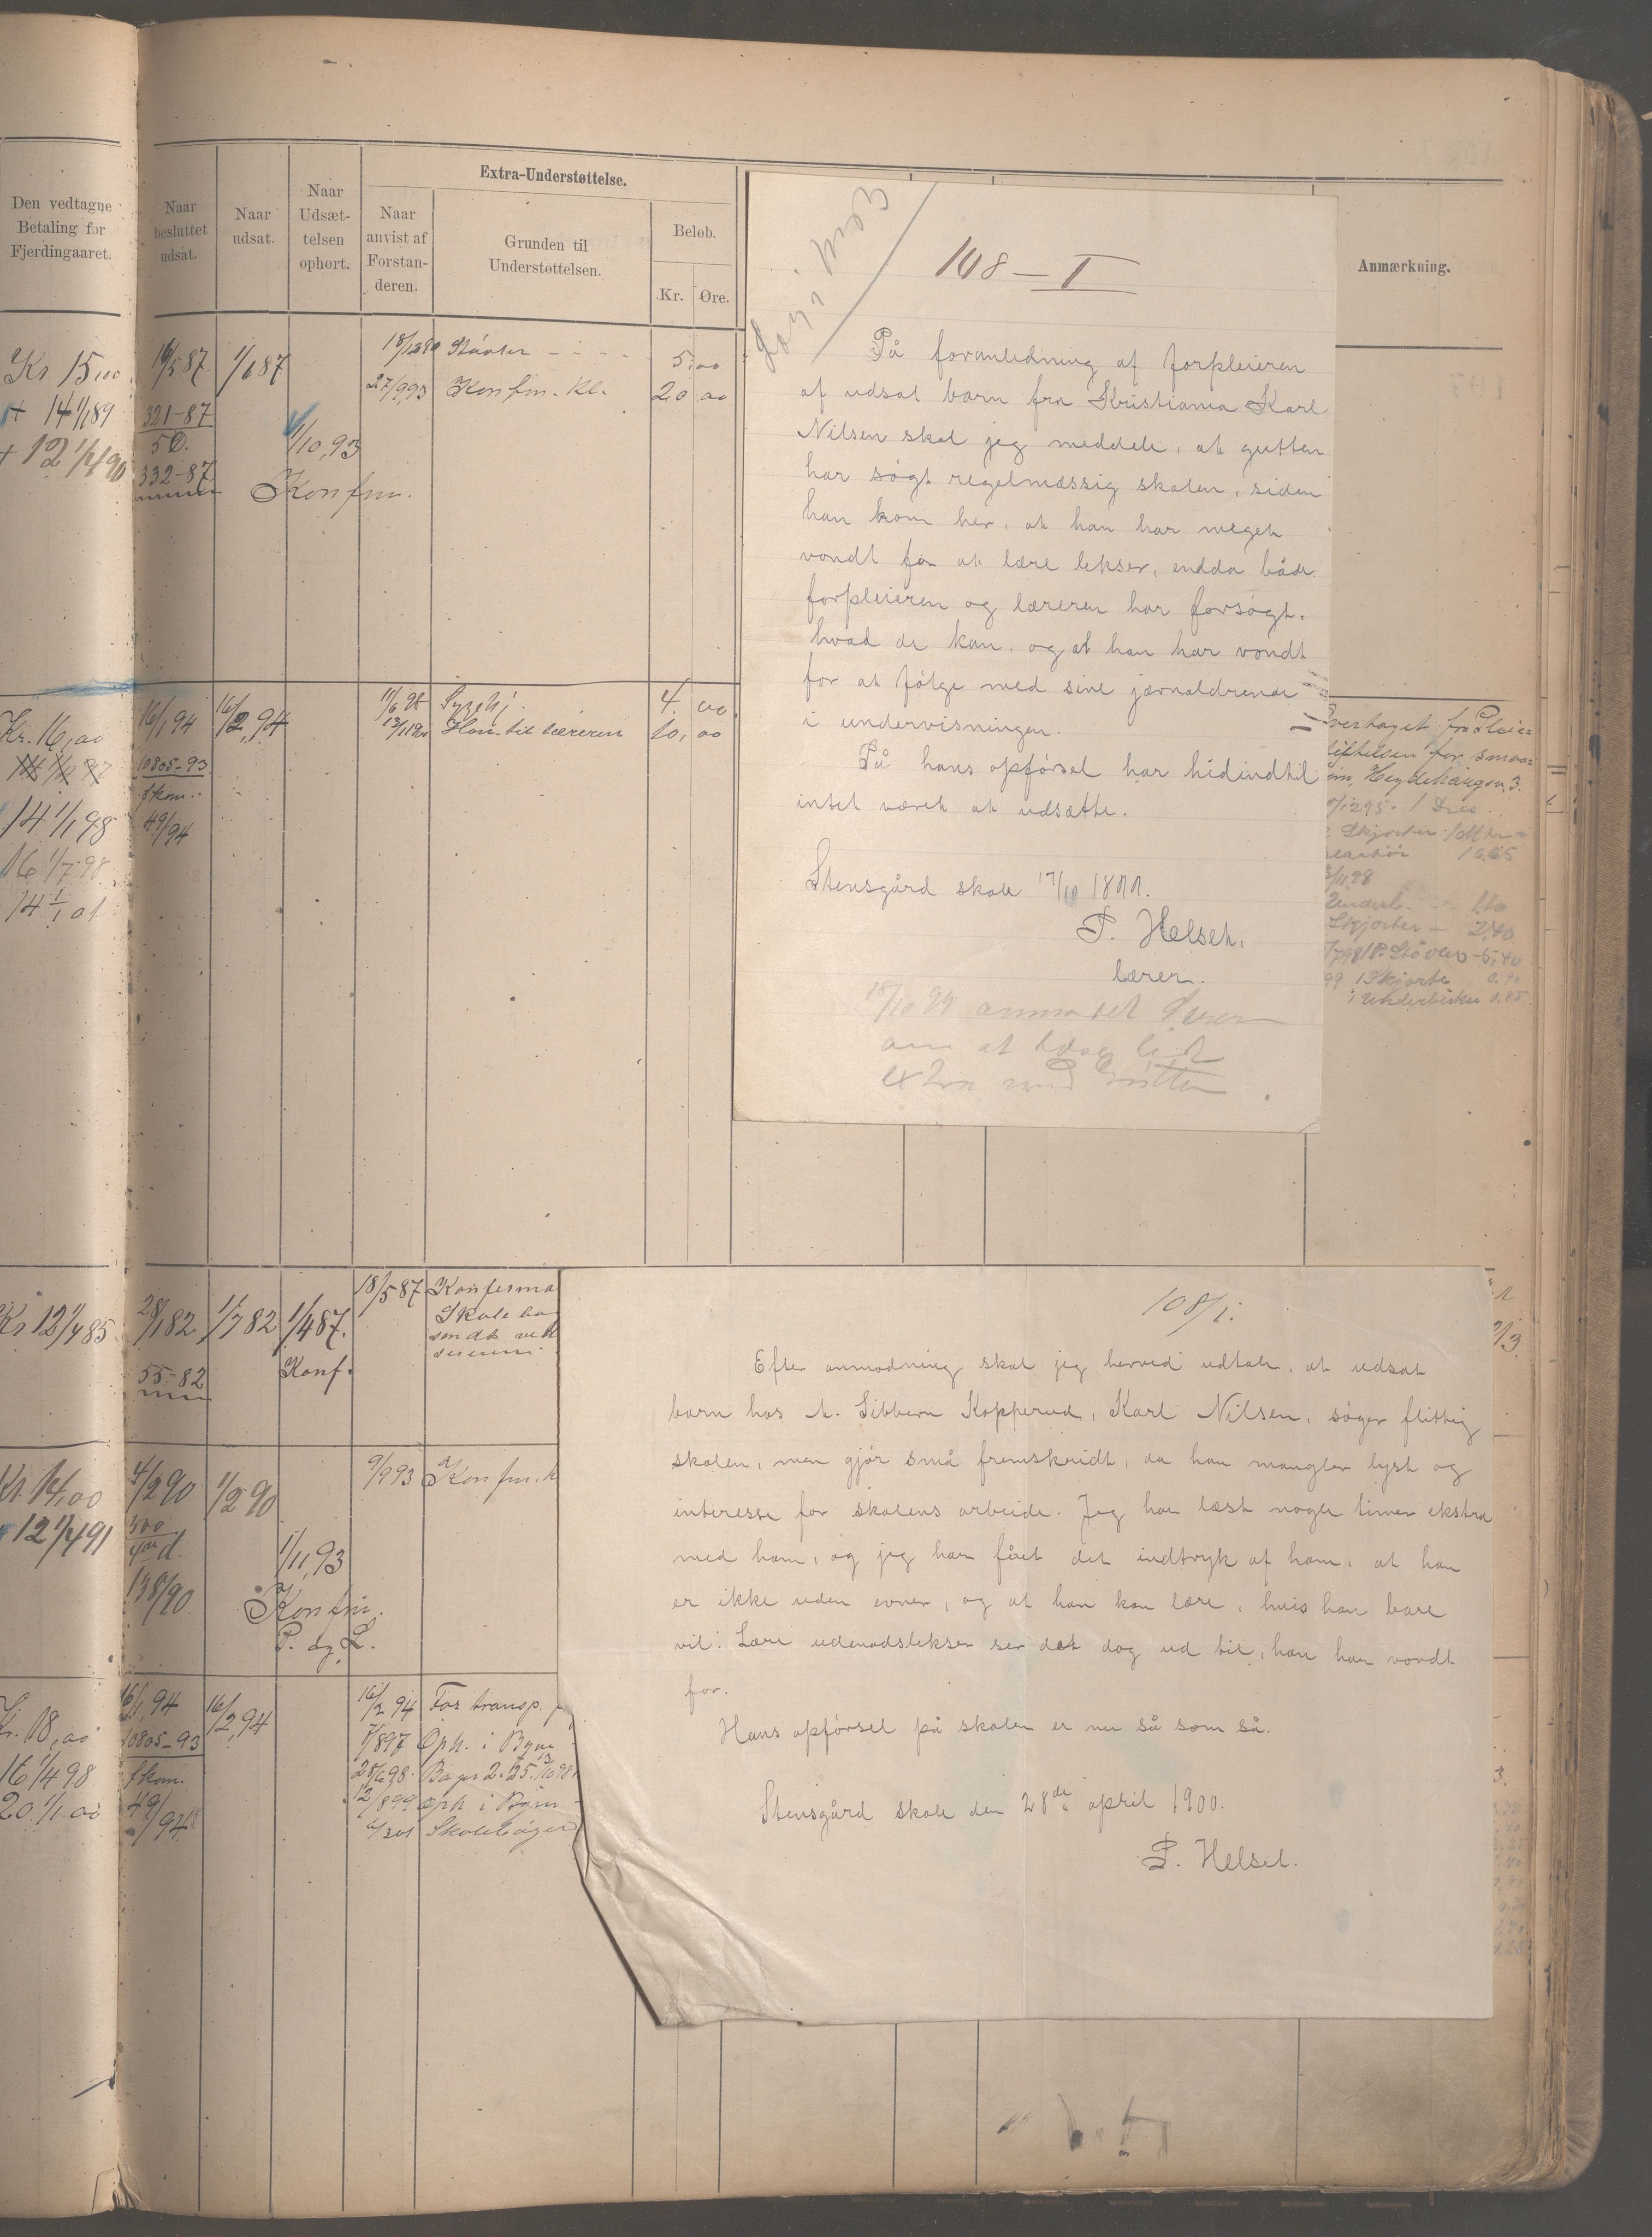 Den vedtagne
Betaling for
Fjerdingaaret.
Naar
besluttet
udsat.
Naar
udsat.
Naar
Udsæt-
telsen
ophørt.
Extra-Understøttelse.
Naar
anvist af
Forstan-
deren.
Grunden til
Understøttelsen.
Beløb.
Kr. Øre.
Anmærkning.
Kr 15,00
14 1/1 89
12 1/4 90
16/5 87
321-87
5 D.
332-87
1/6 87
1/10,93
Konfm.
18/12 90 Støvler - - - - 5,00
27/9 93 Konfm. Kl. 20 00
Kr. 16,00
14 1/1 98
16 1/7 98
14 1/1 01
16/1 94
10805-93
fkom.
49/94
16/2,94
11/6 98 4. 00
Hon. til læreren 10, 00
Kr 12 1/4 85
28/1 82
55-82
1/7 82
1/4 87.
Konf.
18/5 87 Konferma
Skole
sendt
Kr. 14,00
12 1/4 91
4/2 90
500
138/90
1/2 90
1/11,93
Konfm.
P. og L.
9/9 93 Konfm. k
Kr. 18,00
16 1/4 98
20 1/1 00
16/1,94
10805-93
fkom.
49/94
16/2,94
16/2 94 For transp.
7/8 97 Oph. i Byen
Oph. i Byen
Skolebøger
108 – I
På foranledning af forpleieren
af udsat barn fra Kristiania Karl
Nilsen skal jeg meddele, at gutten
har søgt regelmæssig skolen, siden
han kom her, at han har meget
vondt for at lære lekser, endda både
forpleieren og læreren har forsøgt,
hvad de kan, og at han har vondt
for at følge med sine jævnaldrende
i undervisningen.
På hans opførsel har hidindtil
intet været at udsætte.
Stensgård skole 17/10 1899.
P. Helseth,
lærer.
18/10 99 anmodet læreren
om at læse lidt
extra med Gutten.
Overtaget fra Pleie-
stiftelsen for smaa-
børn, Heydehaugen 3.
Skjorter
Underb.
Skjorter – 2,40
Støvler – 5,40
99 1 Skjorte 0.90
1 Underbukse 0.85
108/I.
Efter anmodning skal jeg herved udtale, at udsat
barn hos A. Sibbern Kopperud, Karl Nilsen, søger flittig
skolen, men gjør små fremskridt, da han mangler lyst og
interesse for skolens arbeide. Jeg har læst nogle timer ekstra
med ham, og jeg har fået det indtryk af ham, at han
er ikke uden evner, og at han kan lære, hvis han bare
vil. Lære udenadslekser ser det dog ud til, han har vondt
for.
Hans opførsel på skolen er nu så som så.
Stensgård skole den 28de april 1900.
P. Helset.